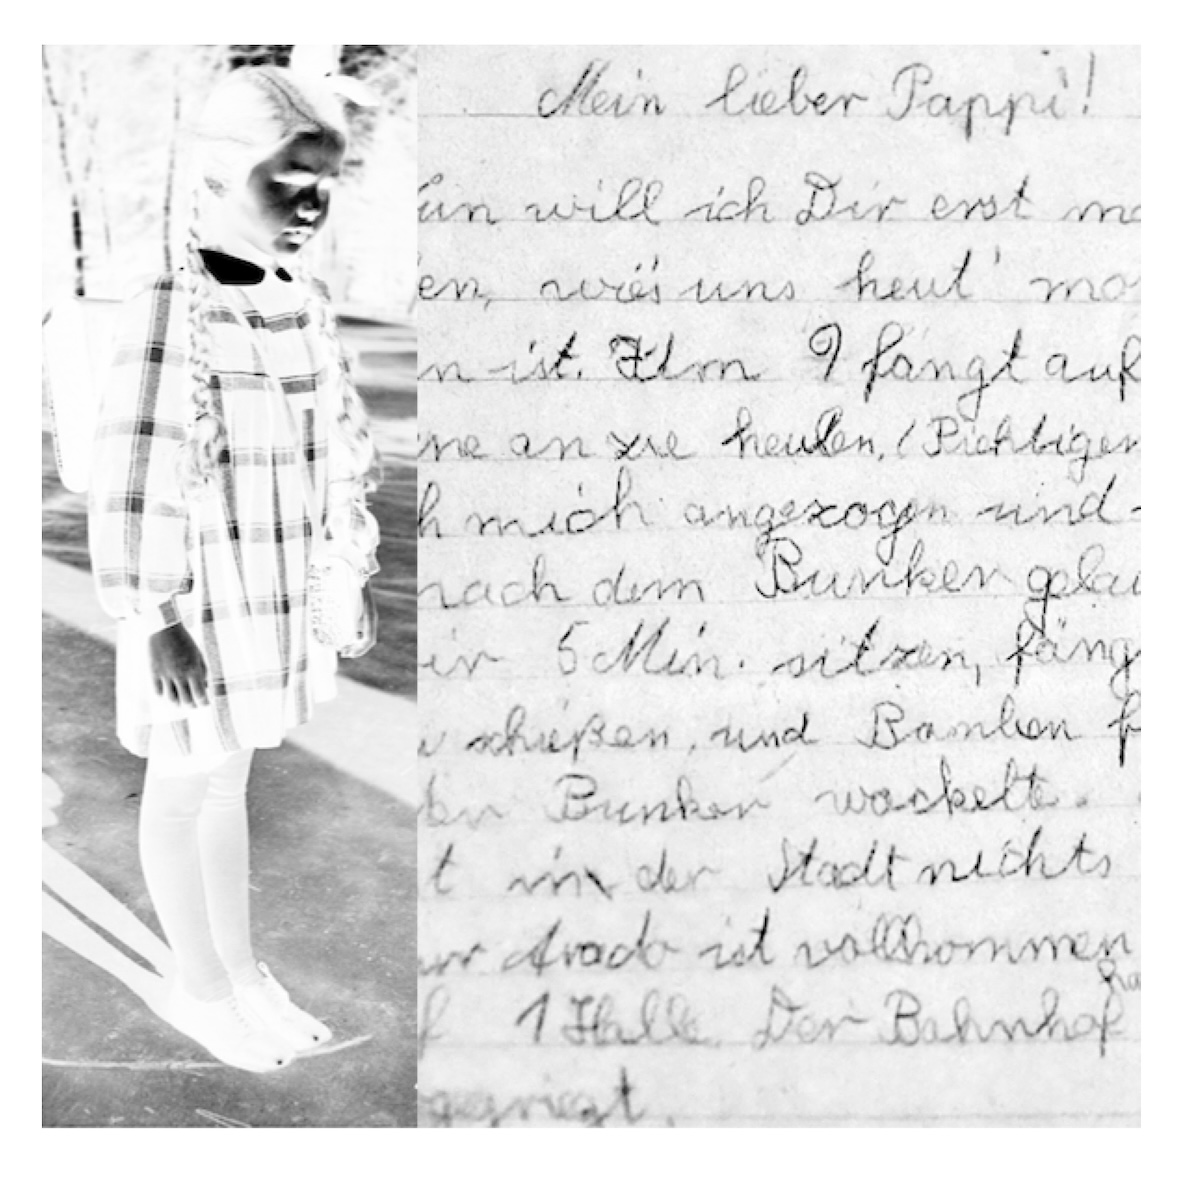 Mein lieber Pappi!
Nun will ich Dir erst ma
en, wie's uns heut' mo
n ist. Um 9 fängt auf
ne an zu heulen. (Richtiger
h mich angezogen und
nach dem Bunker gelau
ir 5 Min. sitzen, fäng
schießen, und Bomben f
der Bunker wackelte.
t in der Stadt nichts
ur Arado ist vollkommen
f 1 Halle. Der Bahnhof
gekriegt.